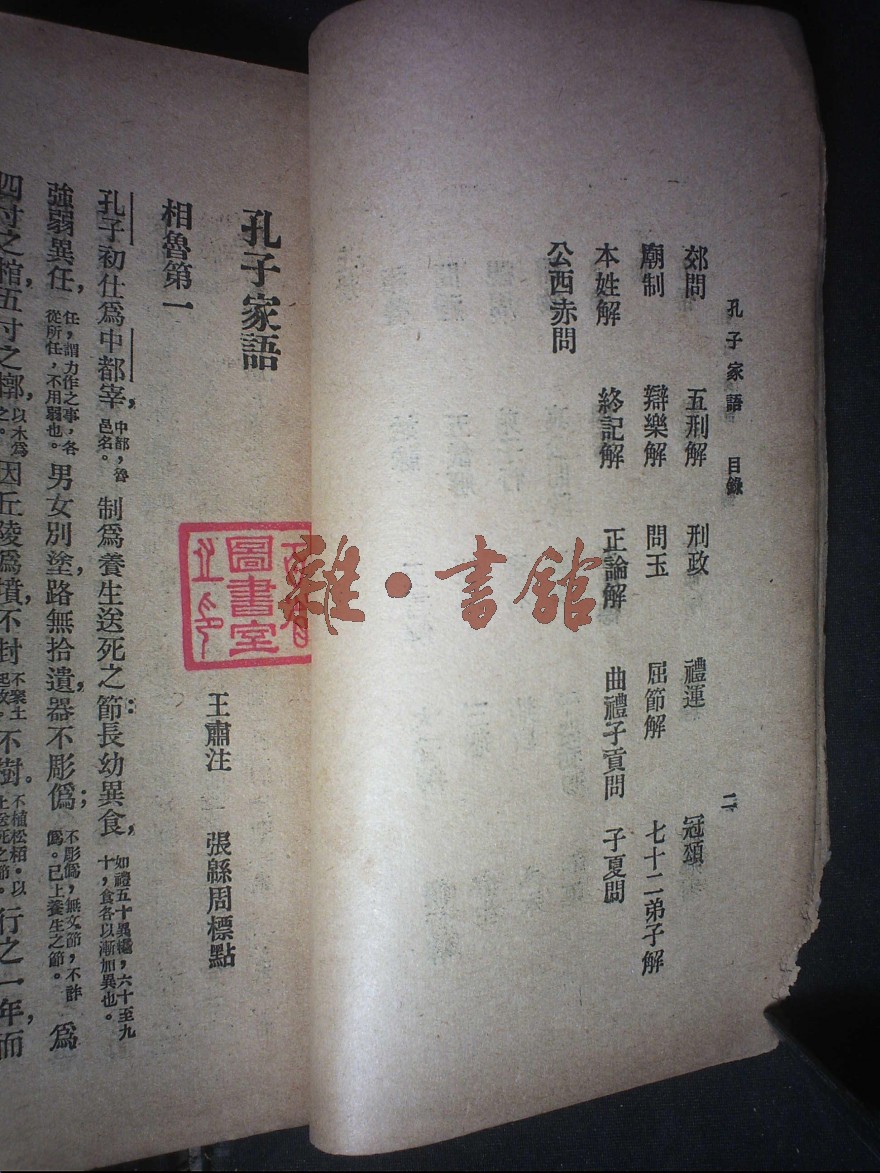 孔子家語 目錄 二
郊問 五刑解 刑政 禮運 冠頌
廟制 辯樂解 問玉 屈節解 七十二弟子解
本姓解 終記解 正論解 曲禮子貢問 子夏問
公西赤問
雜·書館
圖書室
孔子家語
王肅注 張緜周標點
相魯第一
孔子初仕爲中都宰,中都,魯邑名。制爲養生送死之節:長幼異食,如禮五十異糧,六十至九十,食各以漸加異也。
強弱異任,任,謂力作之事,各從所任,不用弱也。男女別塗,路無拾遺,器不彫僞;不彫僞,無文飾,不詐僞。已上養生之節。爲
四寸之棺,五寸之槨,以木爲之。因丘陵爲墳,不封不聚土不樹。不植松栢。以行之一年,而